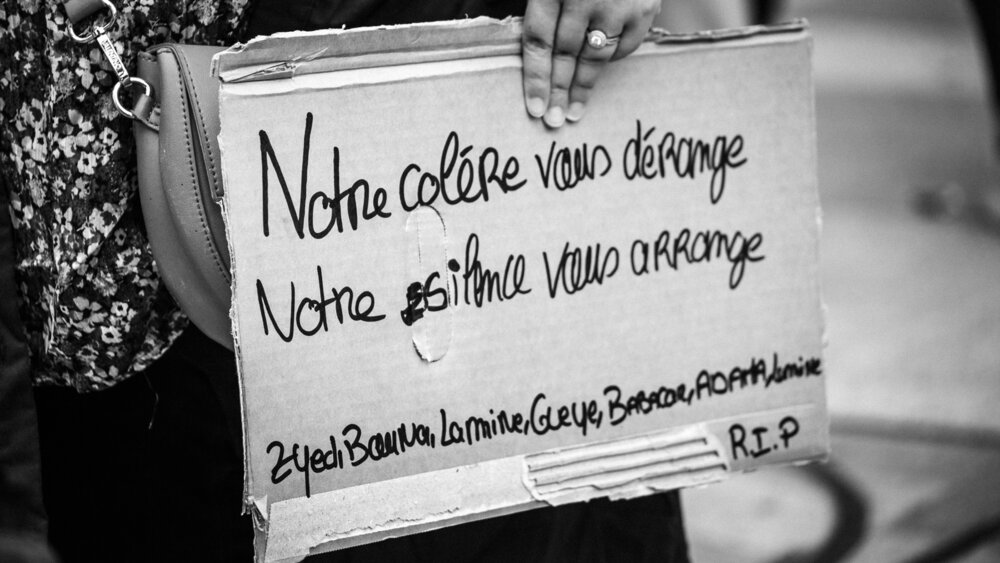 Notre colére vous dérange
Notre silence vous arrange
Zyed, Bouna, Lamine, Gueye, BABACAR, ADAMA, Lamine
R.I.P